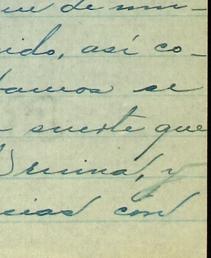 que de mu-
ido, así co-
tamos se
suerte que
ruina, y
cias con